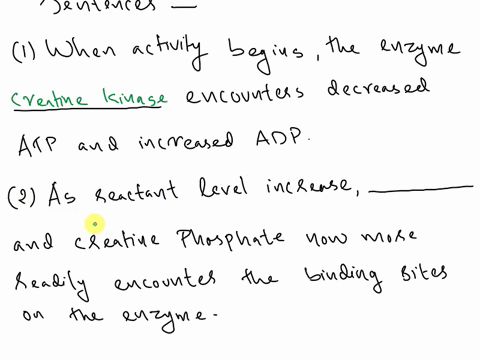 Sentences —
(1) When activity begins, the enzyme
creatine kinase encounters decreased
ATP and increased ADP.
(2) As reactant level increase, ________
and creatine Phosphate now more
readily encounters the binding sites
on the enzyme.